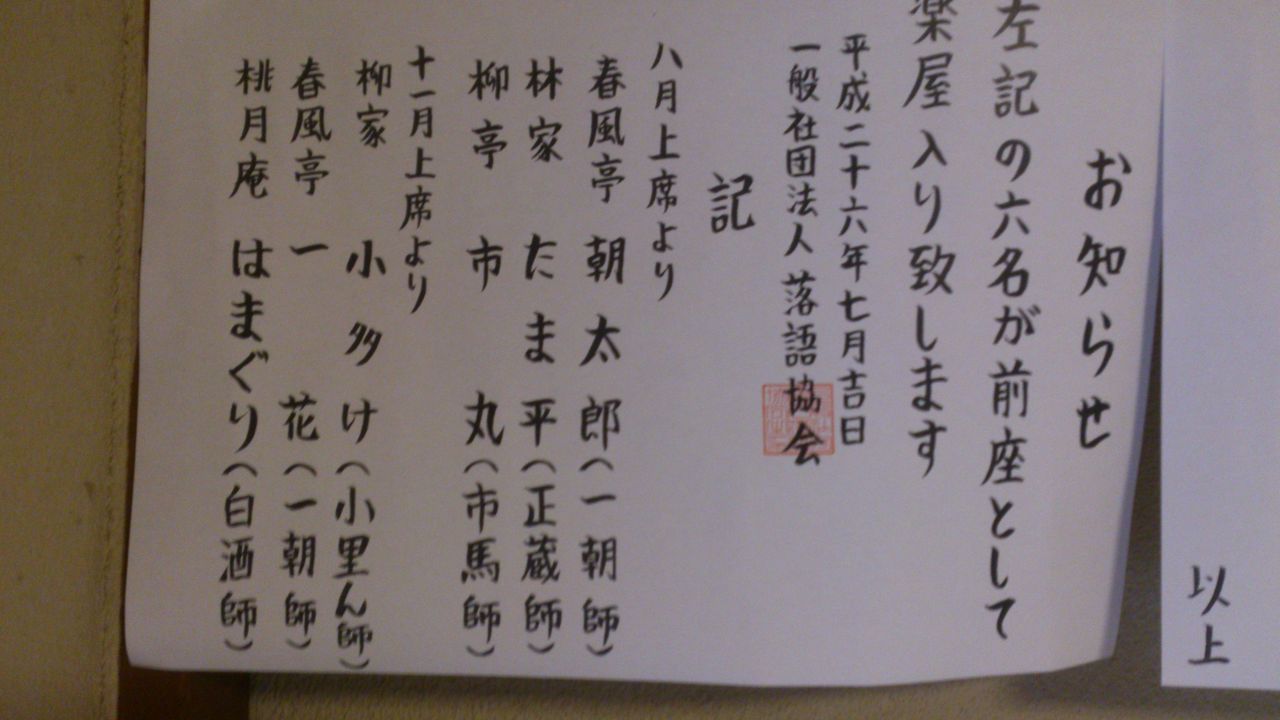 以上
お知らせ
左記の六名が前座として
楽屋入り致します
平成二十六年七月吉日
一般社団法人 落語協会
記
八月上席より
春風亭 朝太郎(一朝師)
林家 たま平(正蔵師)
柳亭 市丸(市馬師)
十一月上席より
柳家 小多け(小里ん師)
春風亭 一花(一朝師)
桃月庵 はまぐり(白酒師)